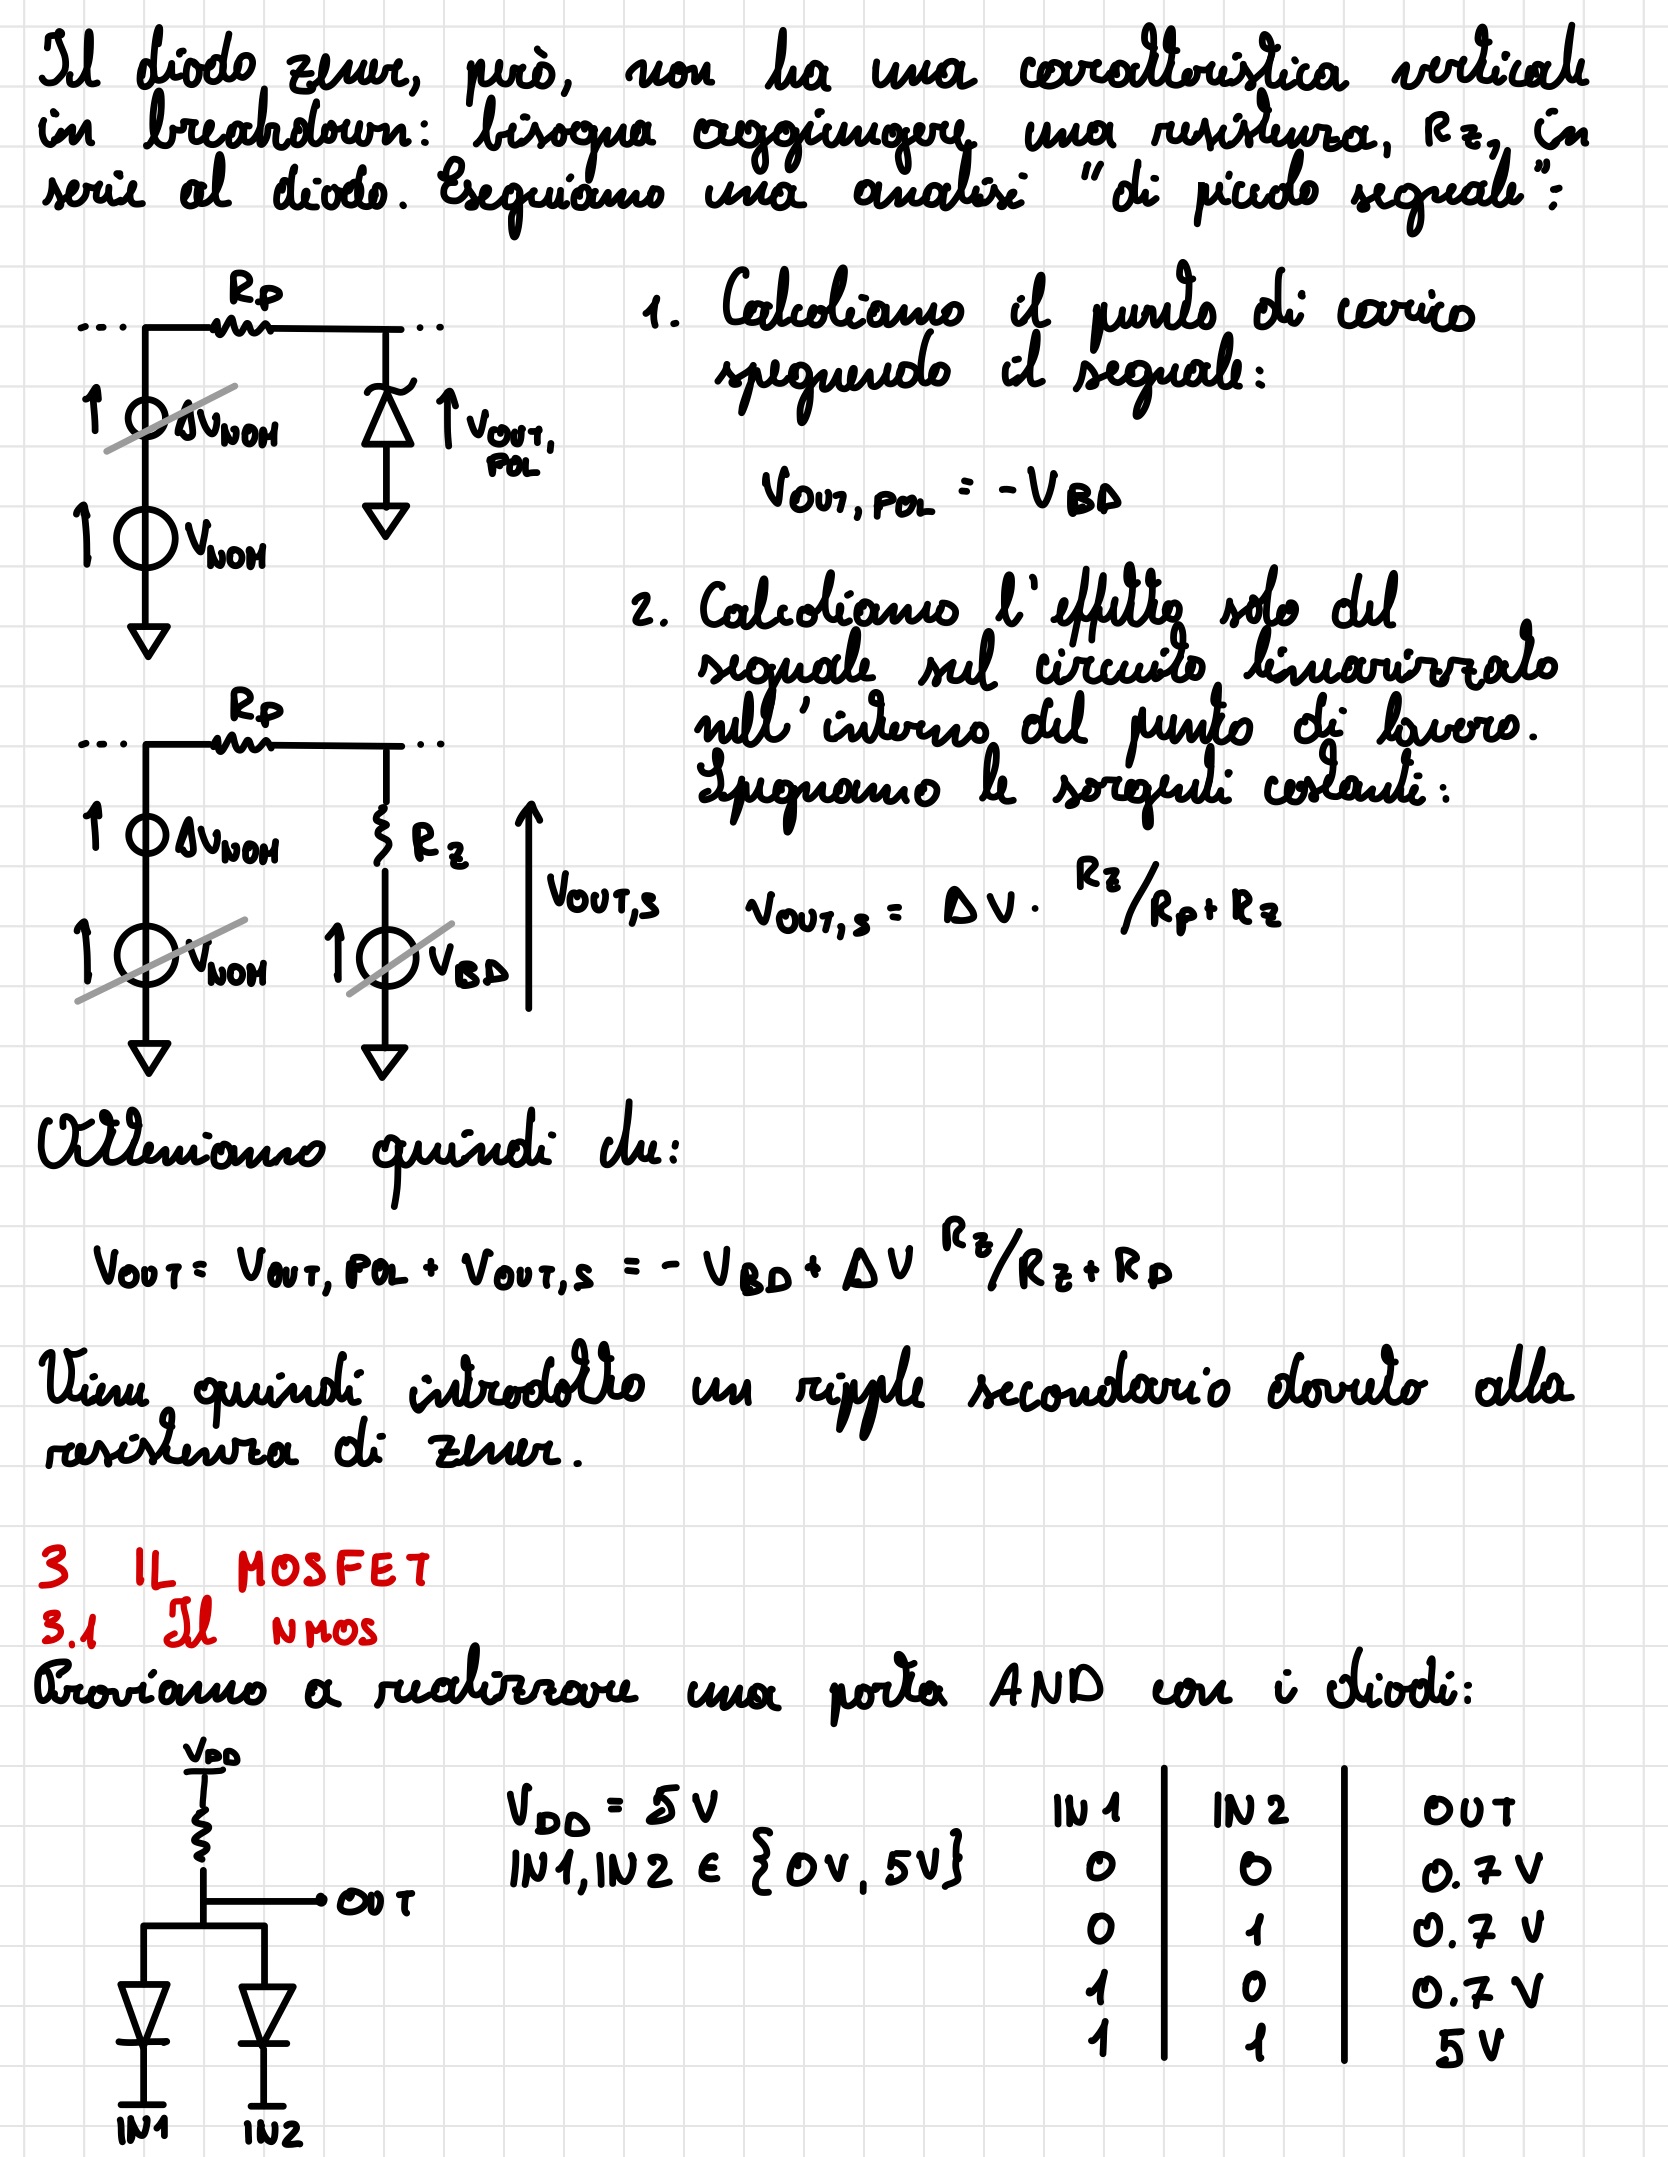 Il diodo zener, però, non ha una caratteristica verticale
in breakdown: bisogna aggiungere una resistenza, Rz, in
serie al diodo. Eseguiamo una analisi "di piccolo segnale":
RP
1. Calcoliamo il punto di carico
spegnendo il segnale:
ΔVNOM
VOUT,
POL
VNOM
VOUT, POL = -VBD
2. Calcoliamo l'effetto solo del
segnale sul circuito linearizzato
nell'interno del punto di lavoro.
Spegnamo le sorgenti costanti:
RP
ΔVNOM
Rz
VOUT,S
VNOM
VBD
VOUT,S = ΔV · Rz/RP+Rz
Otteniamo quindi che:
VOUT = VOUT, POL + VOUT,S = - VBD + ΔV Rz/Rz+RP
Viene quindi introdotto un ripple secondario dovuto alla
resistenza di zener.
3 IL MOSFET
3.1 Il NMOS
Proviamo a realizzare una porta AND con i diodi:
VDD
OUT
IN1 IN2
VDD = 5V
IN1, IN2 ∈ {0V, 5V}
IN1 IN2 OUT
0 0 0.7 V
0 1 0.7 V
1 0 0.7 V
1 1 5V